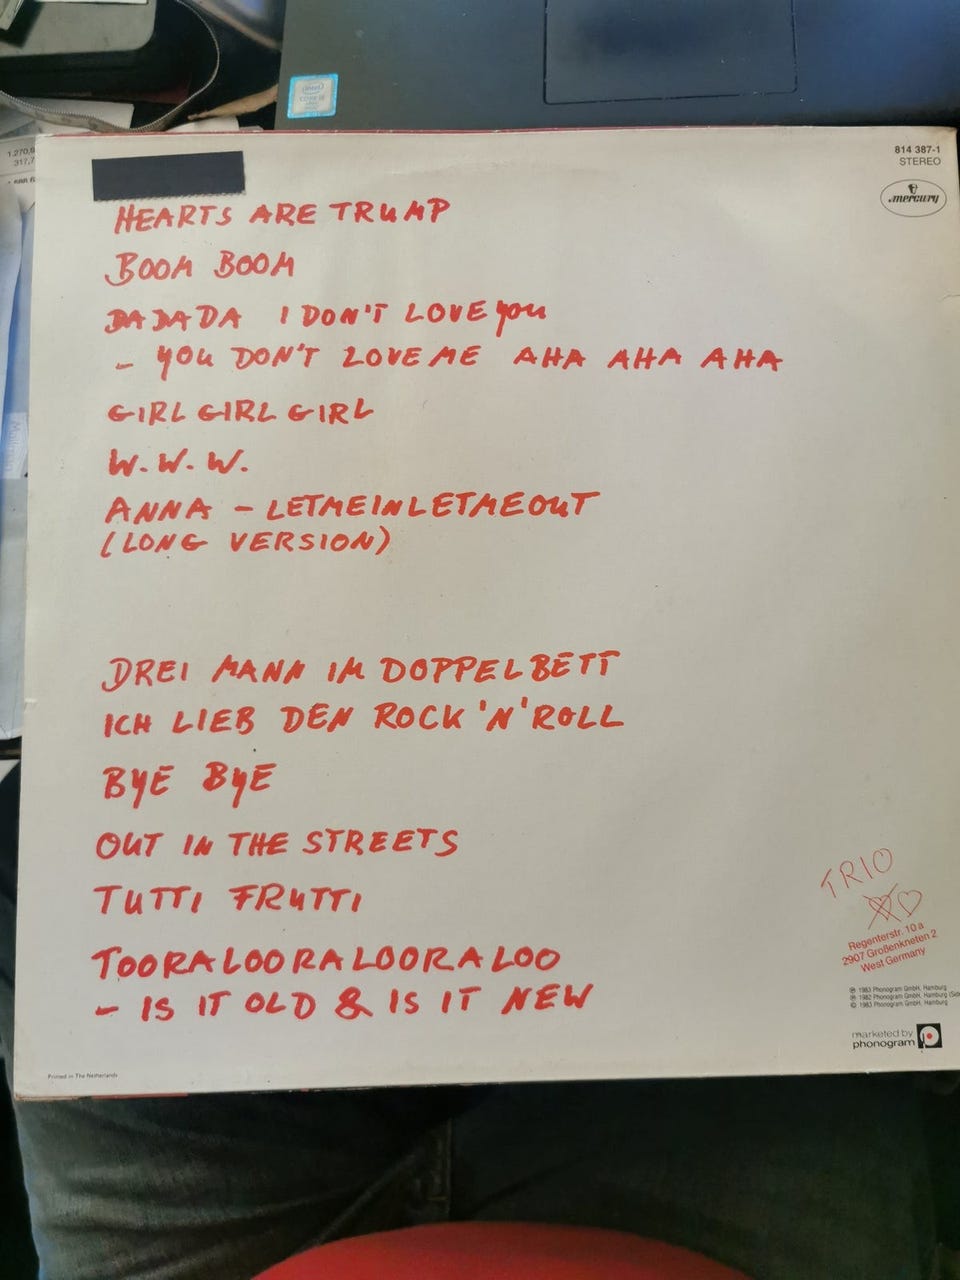 intel
CORE i5
1.270,9
317,7
814 387-1
STEREO
mercury
HEARTS ARE TRUMP
BOOM BOOM
DA DA DA I DON'T LOVE YOU
- YOU DON'T LOVE ME AHA AHA AHA
GIRL GIRL GIRL
W.W.W.
ANNA - LETMEINLETMEOUT
(LONG VERSION)
DREI MANN IM DOPPELBETT
ICH LIEB DEN ROCK 'N' ROLL
BYE BYE
OUT IN THE STREETS
TUTTI FRUTTI
TOORALOORALOORALOO
- IS IT OLD & IS IT NEW
TRIO
Regenterstr. 10a
2907 Großenkneten 2
West Germany
℗ 1983 Phonogram GmbH, Hamburg
℗ 1982 Phonogram GmbH, Hamburg
© 1983 Phonogram GmbH, Hamburg
marketed by
phonogram
Printed in The Netherlands